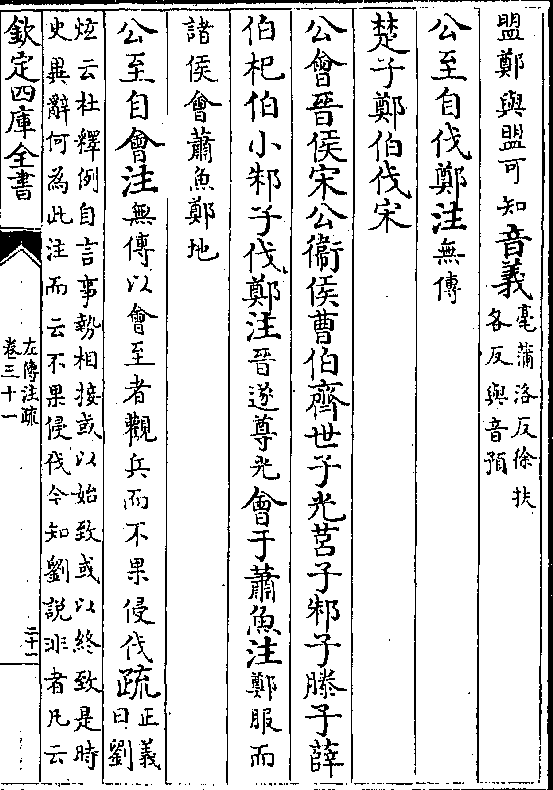 盟鄭與盟可知音義亳蒲洛反徐扶
各反與音預
公至自伐鄭注無傳
楚子鄭伯伐宋
公會晉侯宋公衞侯曹伯齊世子光莒子邾子滕子薛
伯杞伯小邾子伐鄭注晉遂尊光會于蕭魚注鄭服而
諸侯會蕭魚鄭地
公至自會注無傳以會至者觀兵而不果侵伐疏正義
曰劉
炫云杜釋例自言事勢相接或以始致或以終致是時
史異辭何為此注而云不果侵伐今知劉說非者凡云
欽定四庫全書
左傳注疏
卷三十一
二十一